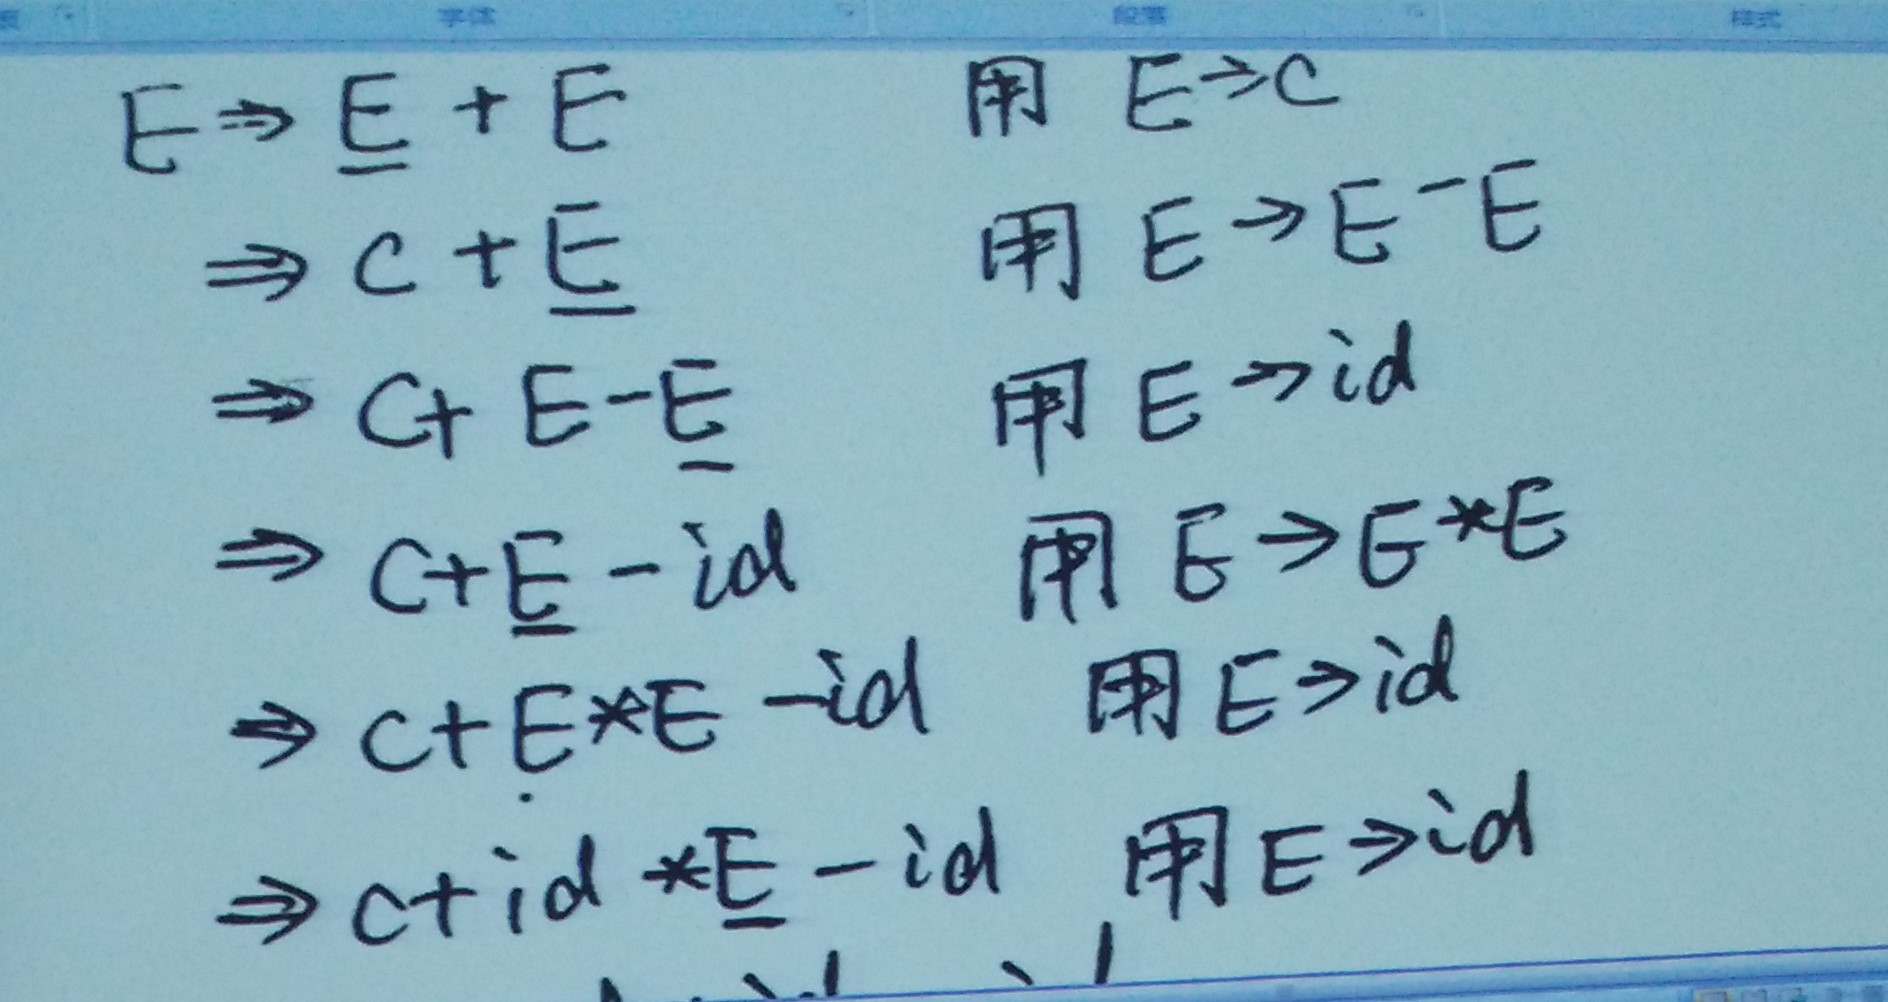 字体 段落 样式
E ⇒ E + E 用 E → C
⇒ C + E 用 E → E - E
⇒ C + E - E 用 E → id
⇒ C + E - id 用 E → E * E
⇒ C + E * E - id 用 E → id
⇒ C + id * E - id 用 E → id